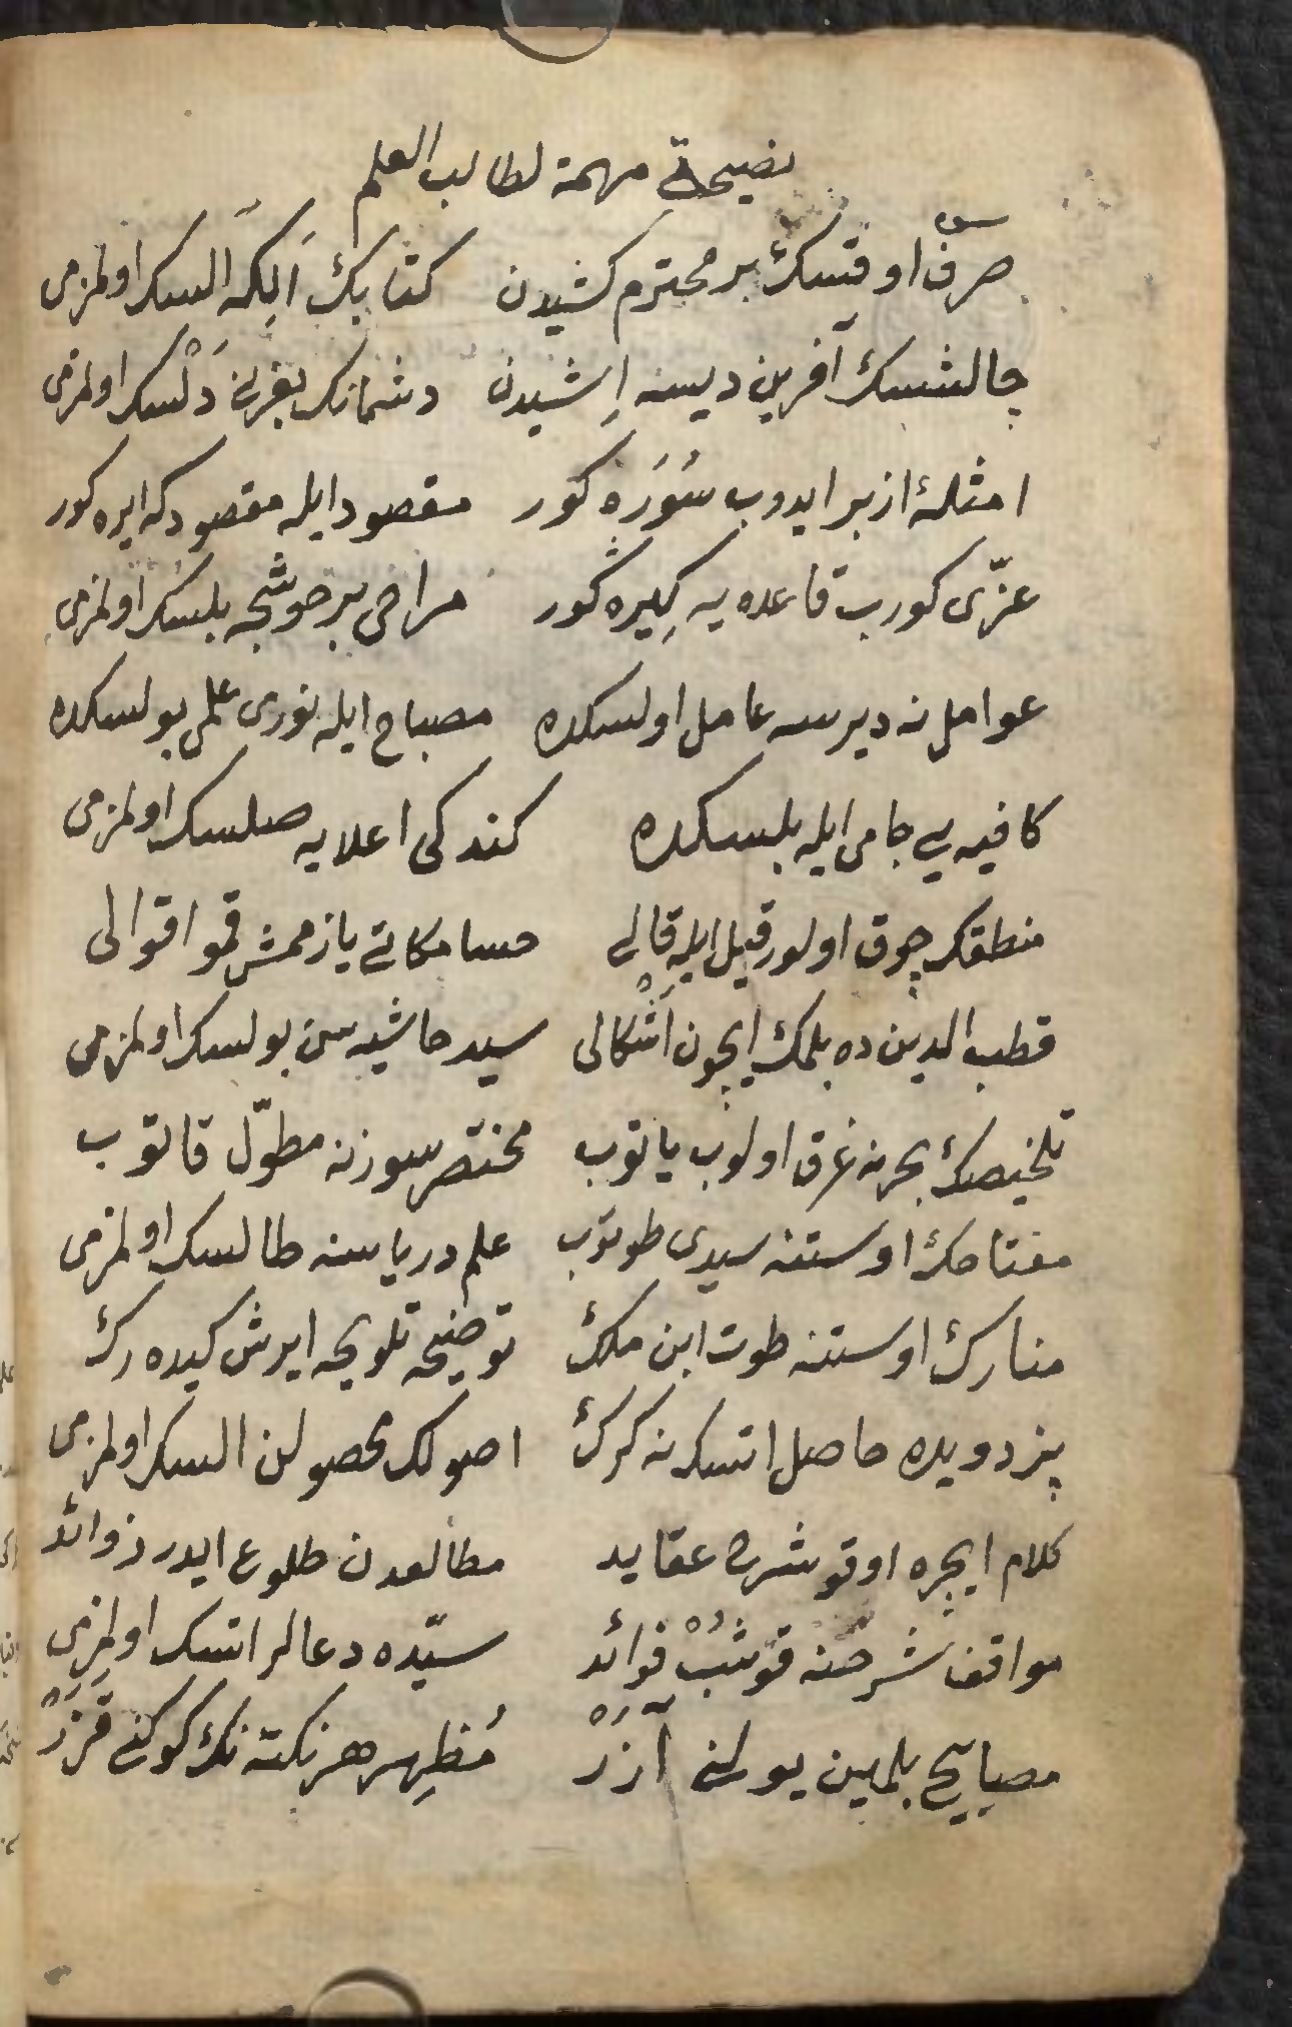 نصيحة مهمة لطالب العلم
صرف اوقتسك بر محترم كشيدن كتابك اَلِكَه السك اولمزمى
چالشسك آفرين ديسه اِشيدن دشمانك بغرنے دَلْسك اولمزمى
امثلهٔ ازبر ايدوب سُوَره كور مقصود ايله مقصودكه ايره كور
عزّى كورب قاعده يه كِيره كور مراحى بر خوشجه بلسك اولمزمى
عوامل نه ديرسه عامل اولسكده مصباح ايله نورى علمى بولسكده
كافيه يى جامى ايله بلسكده كندكى اعلايه صلسك اولمزمى
منطقك چوق اولور قيل ايله قالى حسامكاتى يازممش قمو اقوالى
قطب الدين ده بلمك ايچون اَشْكالى سيد حاشيه سن بولسك اولمزمى
تلخيصك بحرنه غرق اولوب ياتوب مختصر سوزنه مطوّل قاتوب
مفتاحك اوستنه سيدى طوتوب علم درياسنه طالسك اولمزمى
منارك اوستنه طوت ابن ملك توضيحه تلويحه ايرش كيده رك
پزدويده حاصل اتسك نه كرك اصولك محصولن السك اولمزمى
كلام ايچره اوقو شرح عقايد مطالعدن طلوع ايدر زوائد
مواقف شرحنه قوشُبْ فوائد سيّده دعالر اتسك اولمزمى
مصابيح بلمين يولنے آزَرْ مُظهِر هر نكته نك كوكنے قَزَرْ